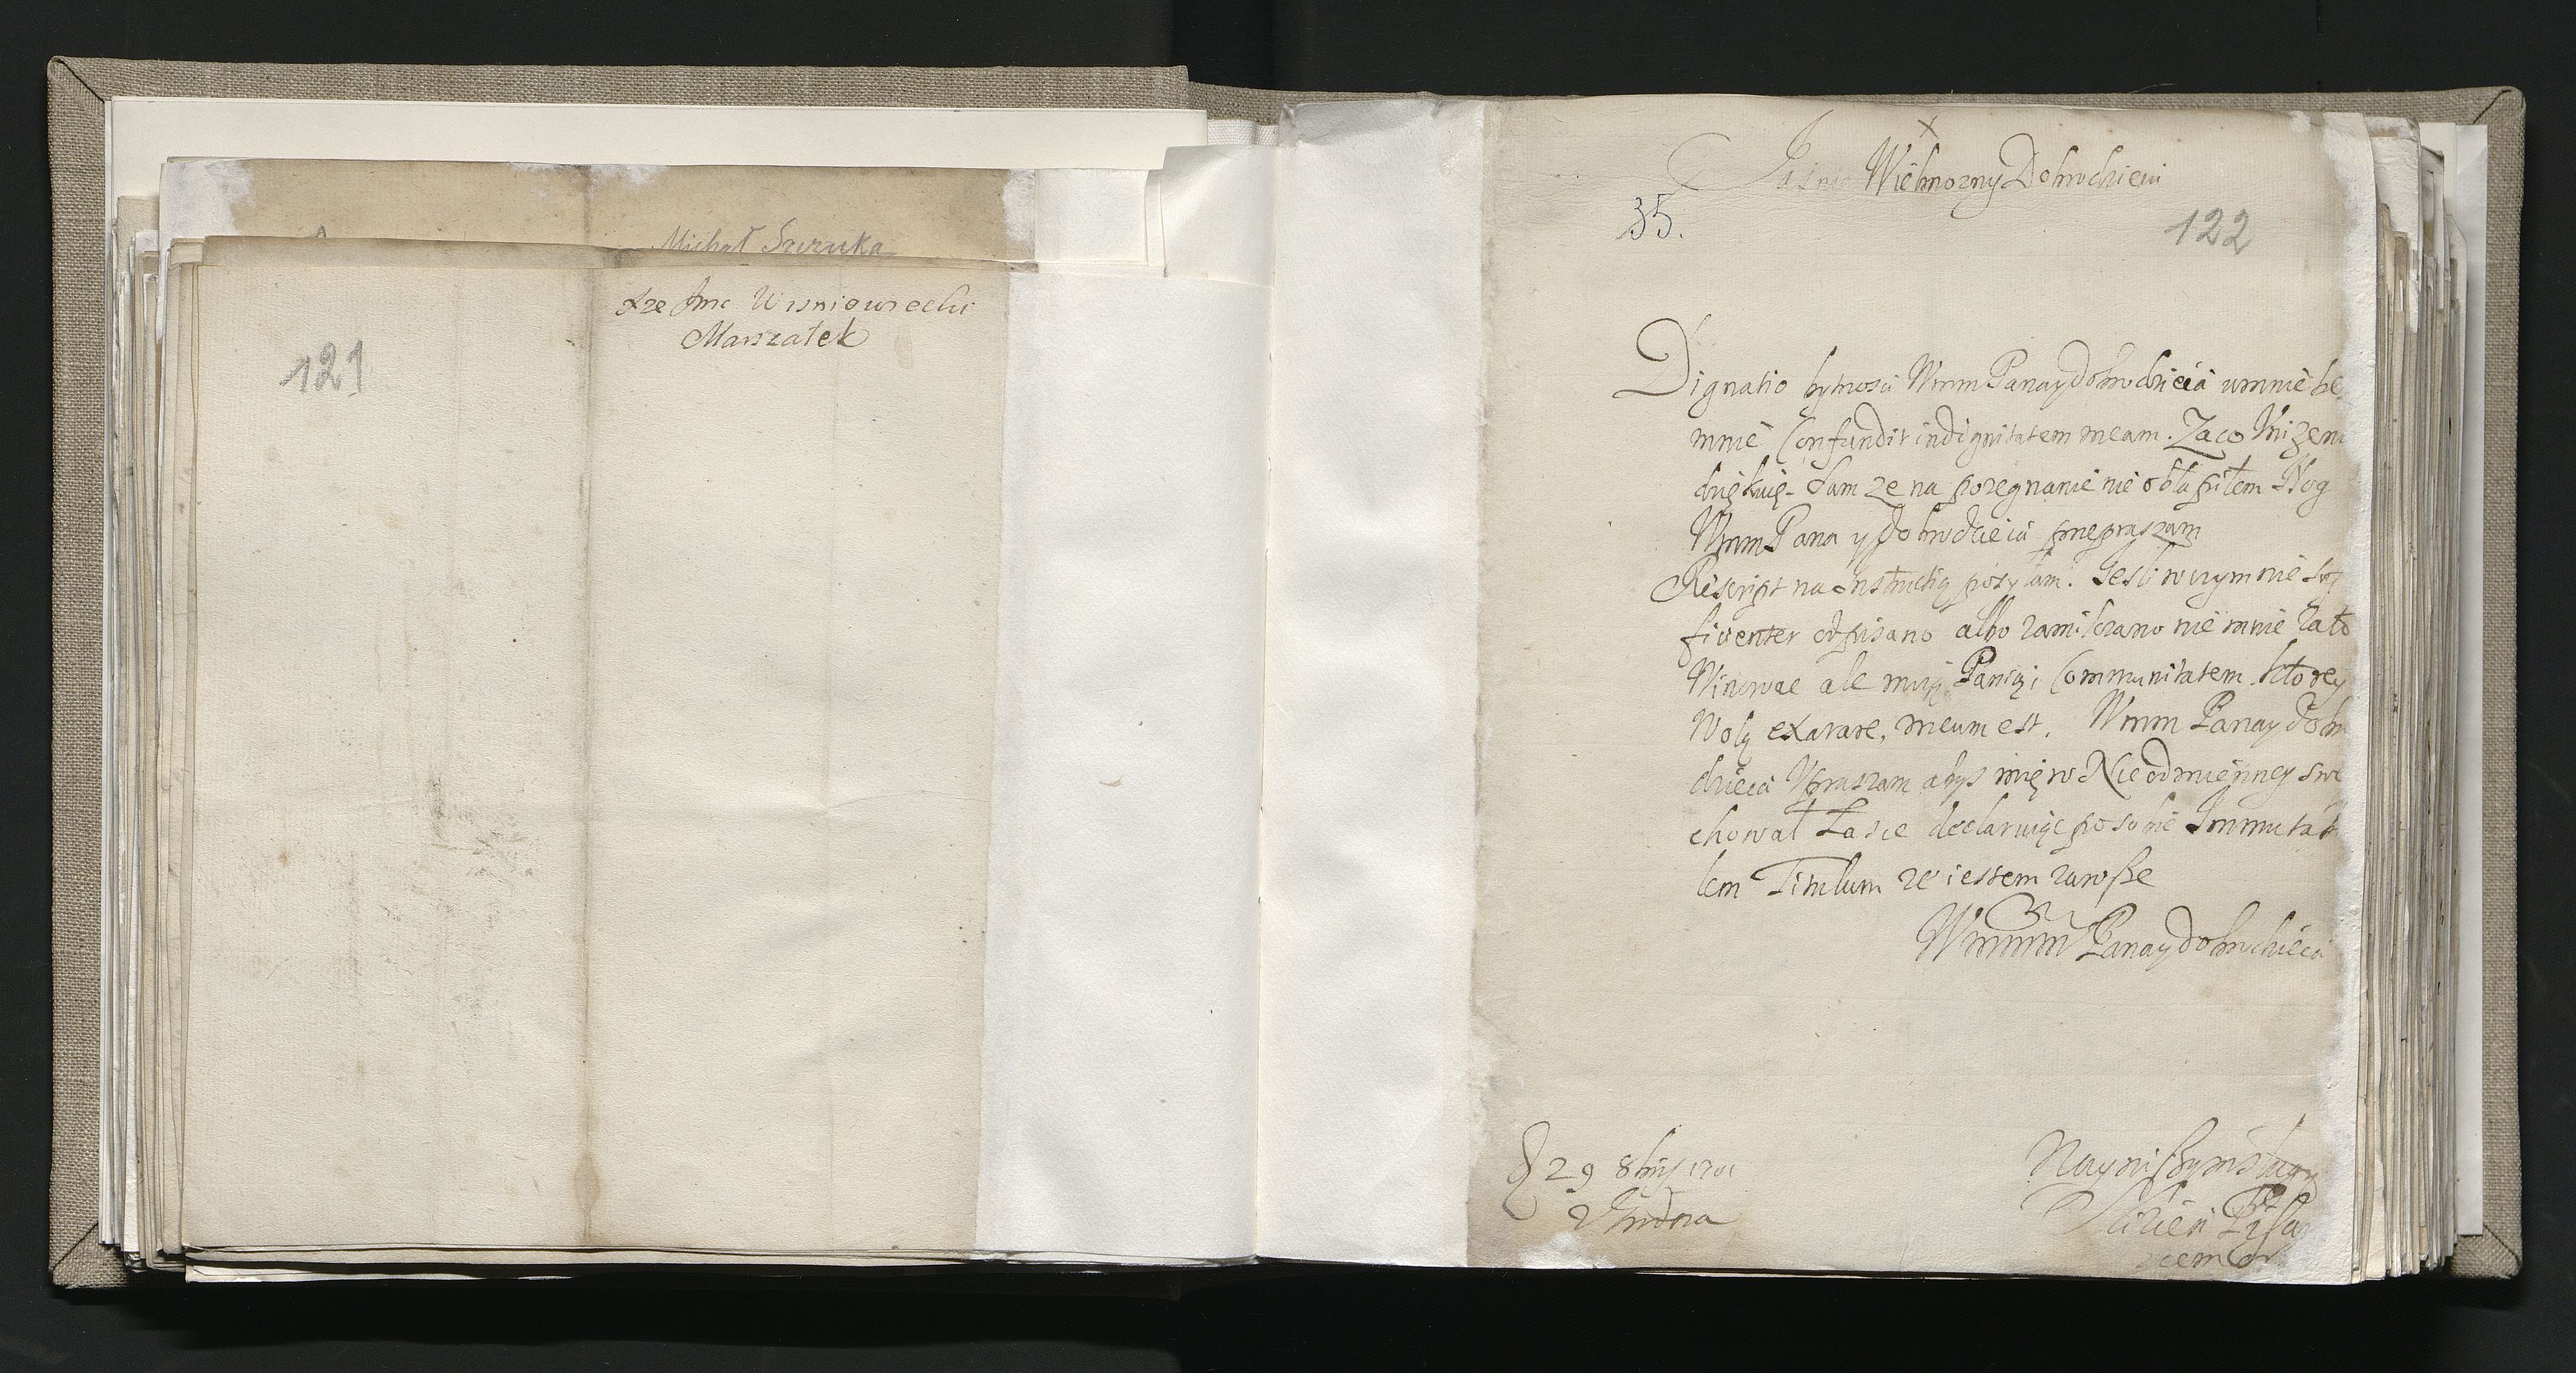 Michał Szruka
Xze Jmc Wisniowiecki
Marszałek
121
Jasnie Wielmozny Dobrodzieiu
35.
122
Dignatio bytnosci Wmm Pana y Dobrodzieia umnie
mnie Confundit indignitatem meam. Zaco
dziękuię. Sam ze na pozegnanie nie obłapiłem Nog
Wmm Pana y Dobrodzieia przepraszam
Rescript na Instructią posyłam. Jesli wczym nie
ficienter odpisano albo zamilczano nie mnie zato
Winowac ale Communitatem ktorey
Wolą exarare, meum est. Wmm Pana y Dobro
dzieia Upraszam abys mię w Nieodmienney swe
chował Łasce declaruiąc po sobie Immutab
lem Titulum ze iestem zawsze
Wmmm Pana y Dobrodzieia
29 8bris 1701
Naynizszym sługą